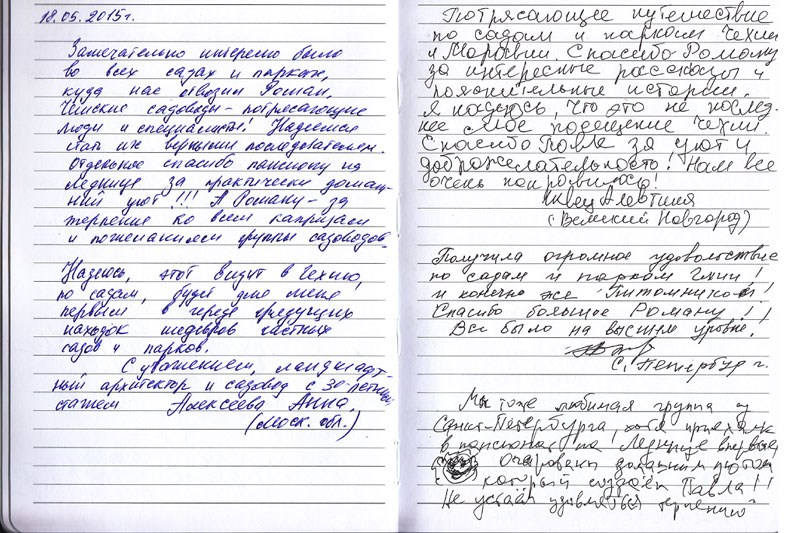 18.05.2015г.
Замечательно интересно было
во всех садах и парках,
куда нас отвозил Роман.
Чешские садоводы - потрясающие
люди и специалисты! Надеемся
стать их верными последователями.
Отдельное спасибо пансиону на
Леднице за практически домаш-
ний уют!!! А Роману - за
терпение ко всем капризам
и пожеланиям группы садоводов.
Надеюсь, этот визит в Чехию,
по садам, будет для меня
первым в череде грядущих
находок шедевров частных
садов и парков.
С уважением, ландшафт-
ный архитектор и садовод с 30-летним
стажем Алексеева Анна.
(Моск. обл.)
Потрясающее путешествие
по садам и паркам Чехии
и Моравии. Спасибо Роману
за интересные рассказы и
познавательные истории.
Я надеюсь, что это не послед-
нее моё посещение Чехии.
Спасибо Павле за уют и
доброжелательность! Нам все
очень понравилось!
Алевтина
(Великий Новгород)
Получила огромное удовольствие
по садам и паркам Чехии!
и конечно же Питомникой!
Спасибо большое Роману!!
Все было на высшем уровне.
С. Петербург г.
Мы тоже любимая группа из
Санкт-Петербурга, хотя приехали
в пансионат на Леднице впервые
Очарованы домашним уютом
который создаёт Павла!!
Не устаём удивляться терпению